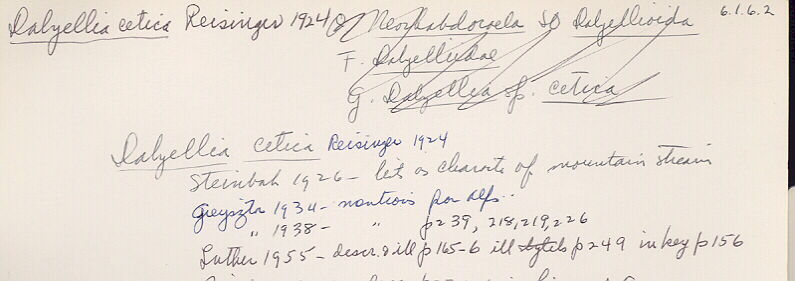 Dalyellia cetica Reisinger 1924 O Neorhabdocoela SO Dalyellioida 6.1.6.2
F. Dalyelliidae
G. Dalyellia sp. cetica
Dalyellia cetica Reisinger 1924
1926 - lists as of mountain stream
1934 - for alps..
" 1938 - " p239, 218, 219, 226
Luther 1955 - descr. & ill p165-6 ill p249 in key p156